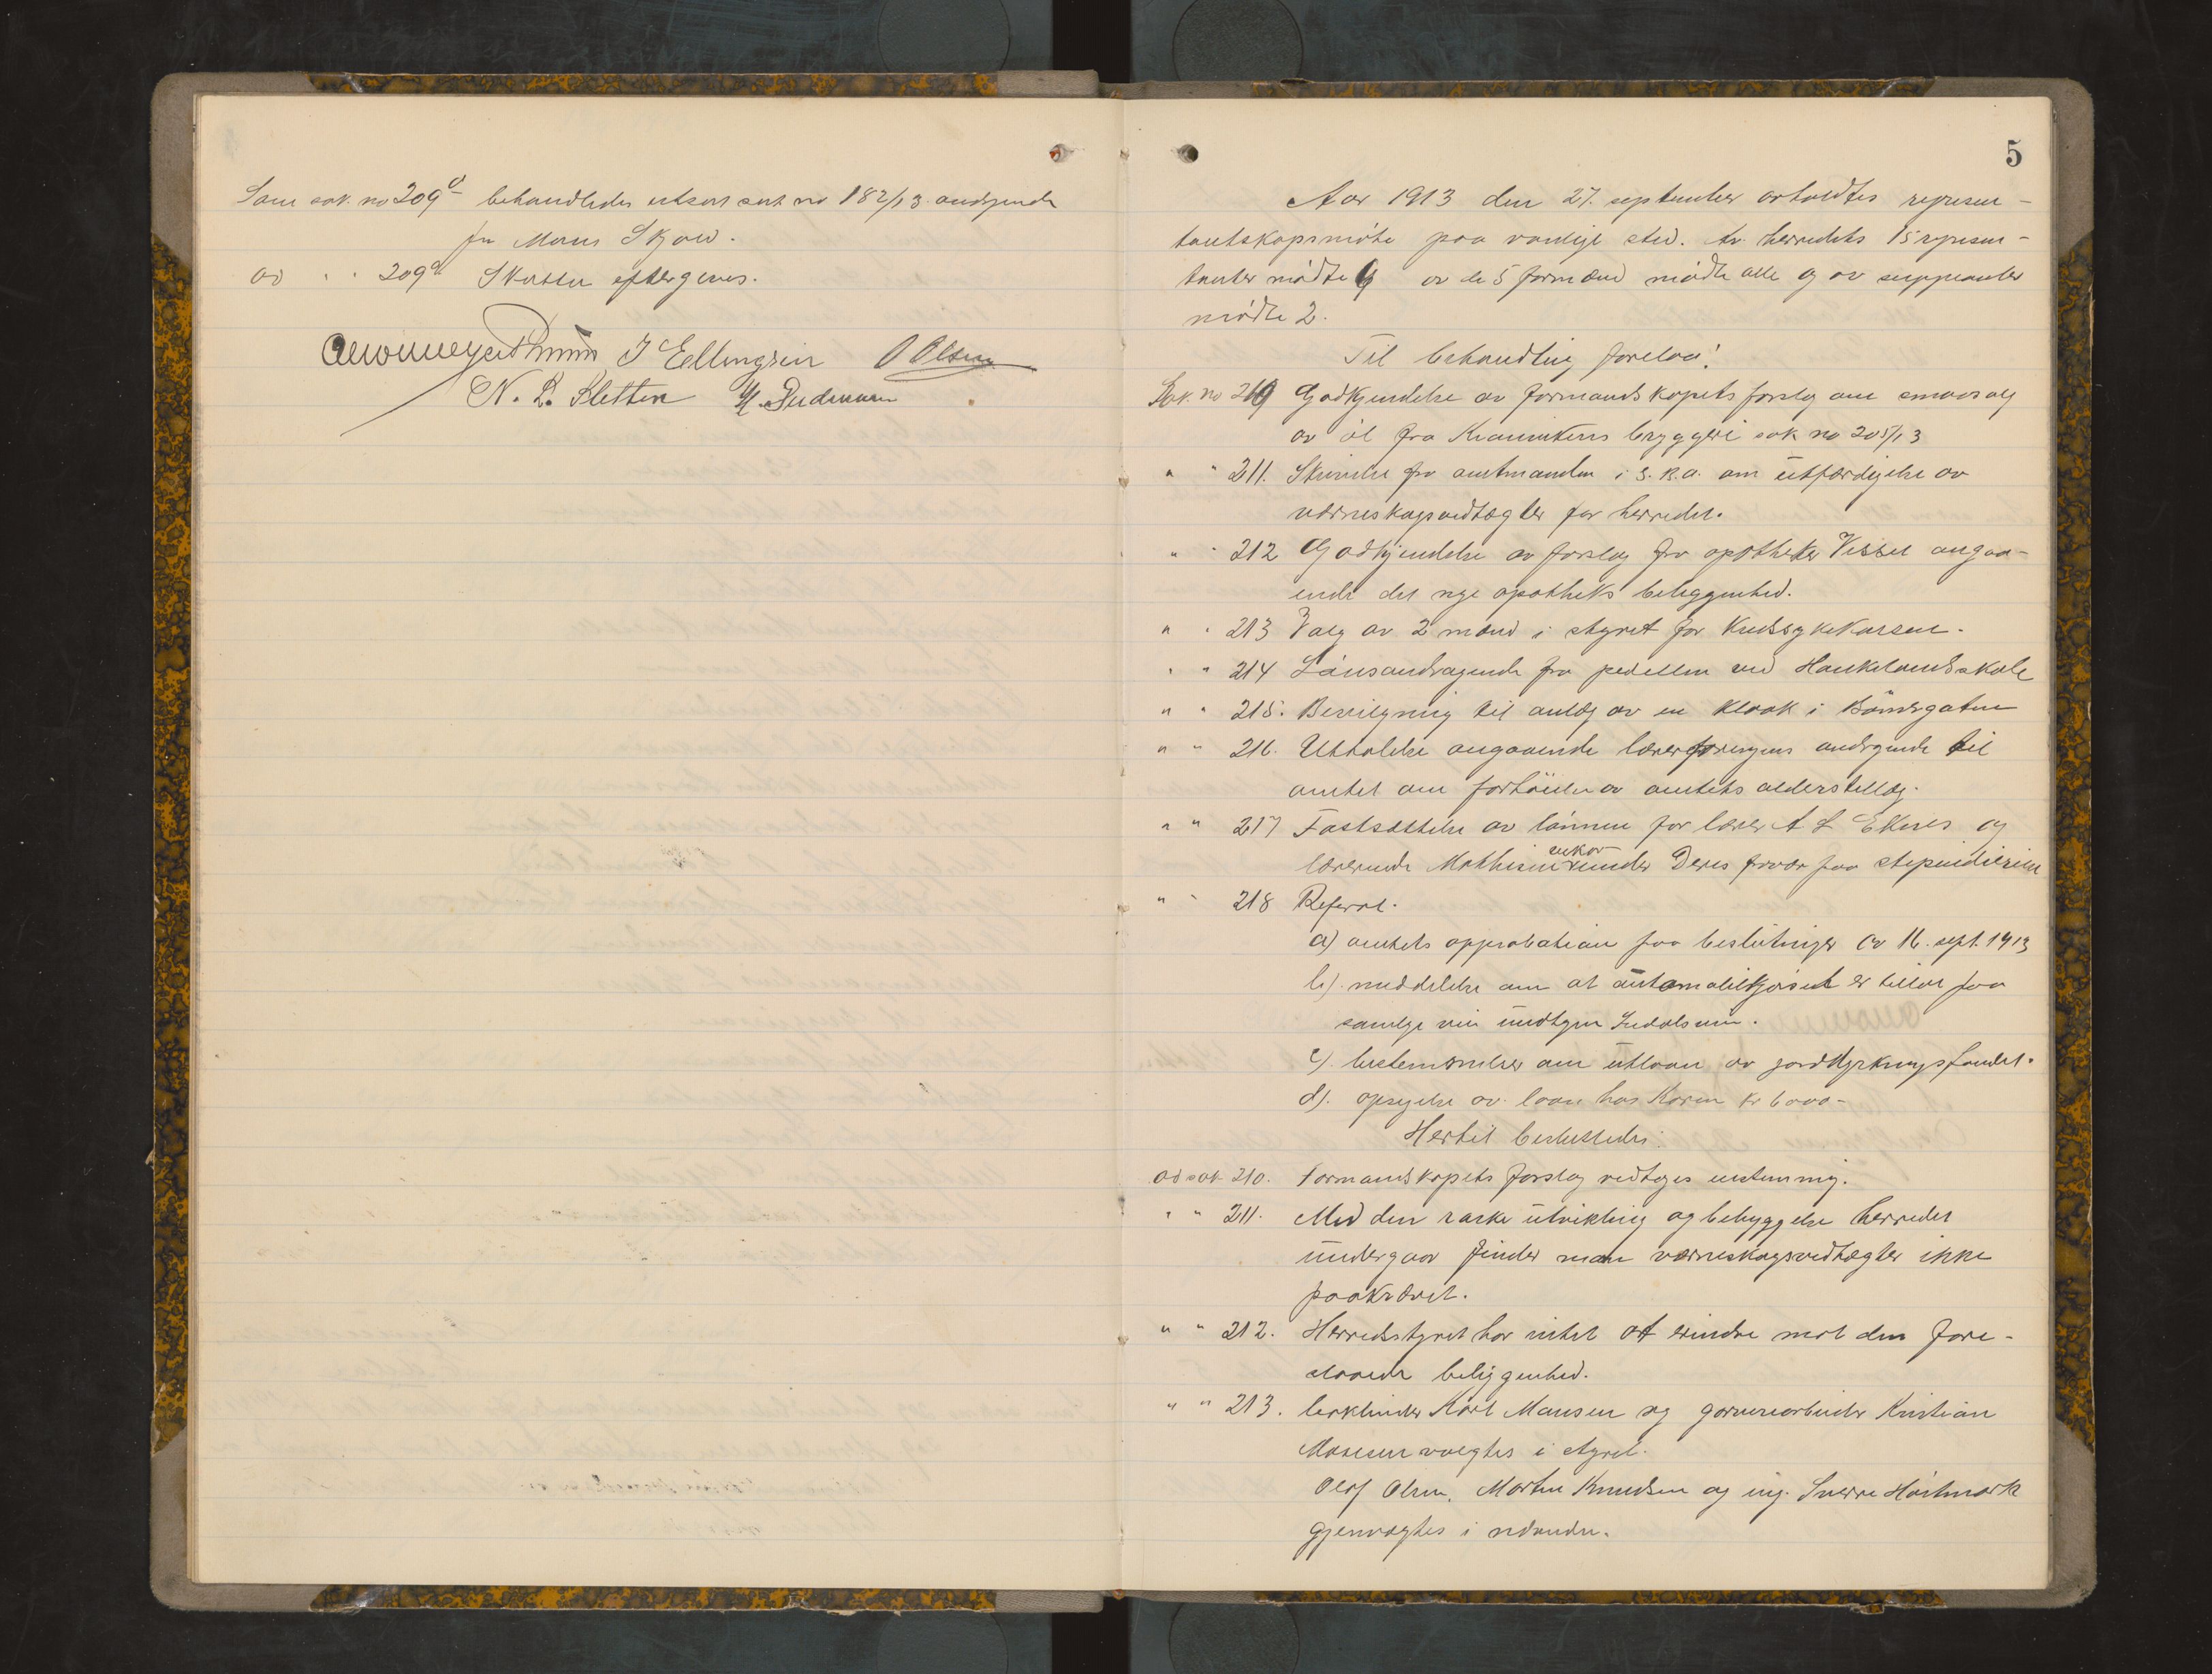 Som sak no 209d behandledes utsat sak no 182/13 andragende
fra Mons Skjold.
ad " " 209d Skatten eftergives.
J Ellingsen O Olsen
N. L. Kletten
5
Aar 1913 den 27. september avholdtes represen-
tantskapsmøte paa vanlige sted. Av herredets 15 represen-
tanter mødte 9 av de 5 formænd mødte alle og av suppleanter
mødte 2.
Til behandling forelaa:
Sak no 210 Godkjendelse av formandskapets forslag om smaasalg
av øl fra bryggeri sak no 205/13
" " 211. Skrivelse fra amtmanden i S. B. a. om utfærdigelse av
værneskogsvedtægter for herredet.
" " 212 Godkjendelse av forslag fra apotheker angaa-
ende det nye apotheks beliggenhed.
" " 213 Valg av 2 mænd i styret for kredssykekassen.
" " 214 Lønsandragende fra pedellen ved Haukelandsskole
" " 215. Bevilgning til anlæg av en kloak i Bønesgaten
" " 216. Uttalelse angaaende lærerforeningens andragende til
amtet om forhøielse av amtets alderstillæg.
" " 217 Fastsættelse av lønnen for lærer A L Ekses og
lærerinde Mathisens vikar under Deres fravær paa stipendiereise
" " 218 Referat.
a) amtets approbation paa beslutninger av 16. sept. 1913
b). meddelelse om at automobilkjørsel er tillat paa
samtlige veie undtagen
c). bestemmelser om utlaan av jorddyrkningsfondet.
d). opsigelse av laan hos kr 6000-
Hertil besluttedes:
ad sak 210. Formandskapets forslag vedtoges enstemmig.
" " 211. Med den raske utvikling og bebyggelse herredet
undergaar finder man værneskogsvedtægter ikke
paakrævet.
" " 212. Herredsstyret har intet at erindre mot den fore-
slaaede beliggenhed.
" " 213. Karl Mansen og garveriarbeider Kristian
Monsen valgtes i styret.
Olaf Olsen, Martin Knudsen og ing. Sverre Hartmark
gjenvalgtes i nævnden.